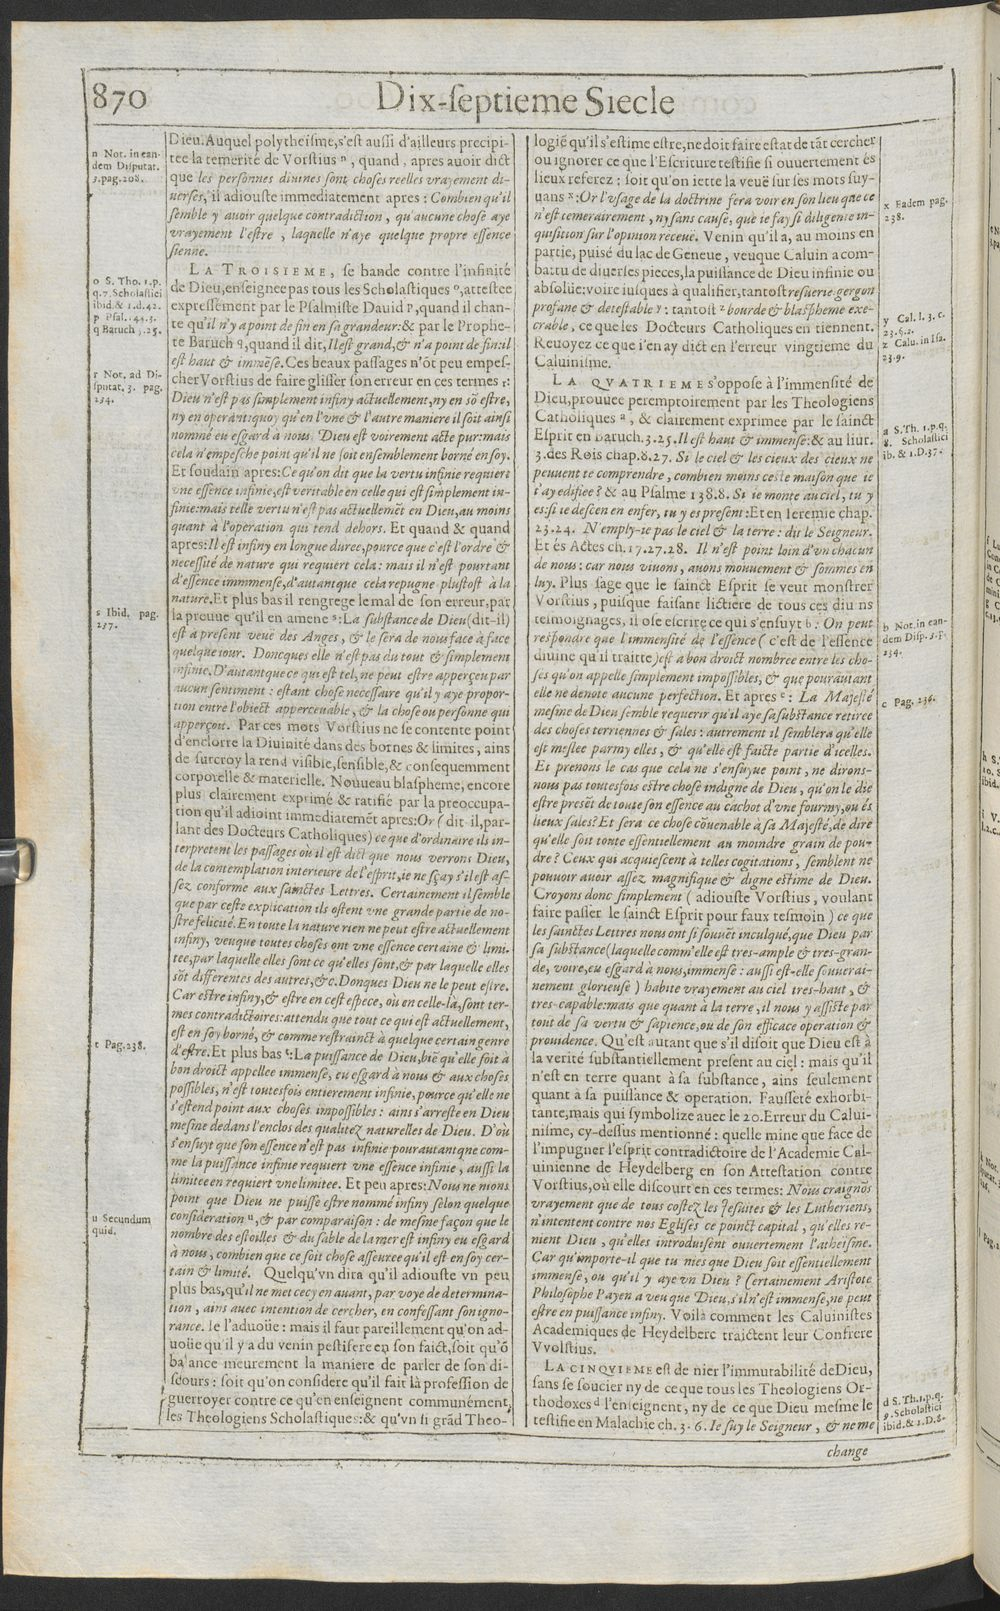 870
Dix-septieme Siecle
n Not. in ean-
dem Disputat.
3. pag. 208.
o S. Tho. 1. p.
q. 7. Scholastici
ibid. & 1. d. 42.
p Psal. 144. 3.
q Baruch 3. 25.
r Not. ad Di-
sputat. 3. pag.
234.
s Ibid. pag.
237.
t Pag. 238.
u Secundum
quid.
Dieu. Auquel polytheïsme, s'est aussi d'ailleurs precipi-
tee la temerité de Vorstius n, quand, apres auoir dict
que les personnes diuines sont choses reelles vrayement di-
uerses, il adiouste immediatement apres : Combien qu'il
semble y auoir quelque contradiction, qu'aucune chose aye
vrayement l'estre, laquelle n'aye quelque propre essence
sienne.
LA TROISIEME, se bande contre l'infinité
de Dieu, enseignee pas tous les Scholastiques o, attestee
expressément par le Psalmiste Dauid p, quand il chan-
te qu'il n'y a point de fin en sa grandeur: & par le Prophe-
te Baruch q, quand il dit, Il est grand, & n'a point de fin: il
est haut & immēse. Ces beaux passages n'ōt peu empes-
cher Vorstius de faire glisser son erreur en ces termes r:
Dieu n'est pas simplement infiny actuellement, ny en sō estre,
ny en operant: quoy qu'en l'vne & l'autre maniere il soit ainsi
nommé eu esgard à nous. Dieu est voirement acte pur: mais
cela n'empesche point qu'il ne soit ensemblement borné en soy.
Et soudain apres: Ce qu'on dit que la vertu infinie requiert
vne essence infinie, est veritable en celle qui est simplement in-
finie: mais telle vertu n'est pas actuellemēt en Dieu, au moins
quant à l'operation qui tend dehors. Et quand & quand
apres: Il est infiny en longue duree, pource que c'est l'ordre &
necessité de nature qui requiert cela: mais il n'est pourtant
d'essence immmense, d'autant que cela repugne plustost à la
nature. Et plus bas il rengrege le mal de son erreur, par
la preuue qu'il en amene s: La substance de Dieu (dit-il)
est à present veuë des Anges, & le sera de nous face à face
quelque iour. Doncques elle n'est pas du tout & simplement
infinie. D'autant que ce qui est tel, ne peut estre apperçeu par
aucun sentiment : estant chose necessaire qu'il y aye propor-
tion entre l'obiect apperceuable, & la chose ou personne qui
apperçoit. Par ces mots Vorstius ne se contente point
d'enclorre la Diuinité dans des bornes & limites, ains
de surcroy la rend visible, sensible, & consequemment
corporelle & materielle. Nouueau blaspheme, encore
plus clairement exprimé & ratifié par la preoccupa-
tion qu'il adioint immediatemēt apres: Or (dit-il, par-
lant des Docteurs Catholiques) ce que d'ordinaire ils in-
terpretent les passages où il est dict que nous verrons Dieu,
de la contemplation interieure de l'esprit, ie ne sçay s'il est as-
sez conforme aux sainctes Lettres. Certainement il semble
que par ceste explication ils ostent vne grande partie de no-
stre felicité. En toute la nature rien ne peut estre actuellement
infiny, veu que toutes choses ont vne essence certaine & limi-
tee, par laquelle elles sont ce qu'elles sont, & par laquelle elles
sōt differentes des autres, &c. Donques Dieu ne le peut estre.
Car estre infiny, & estre en cest espece, ou en celle-là, sont ter-
mes contradictoires: attendu que tout ce qui est actuellement,
est en soy borné, & comme restrainct à quelque certain genre
d'estre. Et plus bas t: La puissance de Dieu, biē qu'elle soit à
bon droict appellee immense, eu esgard à nous & aux choses
possibles, n'est toutesfois entierement infinie, pource qu'elle ne
s'estend point aux choses impossibles : ains s'arreste en Dieu
mesme dedans l'enclos des qualitez naturelles de Dieu. D'où
s'ensuyt que son essence n'est pas infinie: pourautant que com-
me la puissance infinie requiert vne essence infinie, aussi la
limitee en requiert vne limitee. Et peu apres: Nous ne nions
point que Dieu ne puisse estre nommé infiny selon quelque
consideration u, & par comparaison : de mesme façon que le
nombre des estoilles & du sable de la mer est infiny eu esgard
à nous, combien que ce soit chose asseuree qu'il est en soy cer-
tain & limité. Quelqu'vn dira qu'il adiouste vn peu
plus bas, qu'il ne met cecy en auant, par voye de determina-
tion, ains auec intention de cercher, en confessant son igno-
rance. Ie l'aduoüe : mais il faut pareillement qu'on ad-
uoüe qu'il y a du venin pestifere en son faict, soit qu'ō
balance meurement la maniere de parler de son di-
scours : soit qu'on considere qu'il fait là profession de
guerroyer contre ce qu'en enseignent communément,
les Theologiens Scholastiques: & qu'vn si grād Theo-
logiē qu'il s'estime estre, ne doit faire estat de tāt cercher
ou ignorer ce que l'Escriture testifie si ouuertement és
lieux referez : soit qu'on iette la veuë sur ses mots suy-
uans x: Or l'vsage de la doctrine fera voir en son lieu que ce
n'est temerairement, ny sans cause, que ie fay si diligente in-
quisition sur l'opinion receuë. Venin qu'il a, au moins en
partie, puisé du lac de Geneue, veu que Caluin a com-
battu de diuerses pieces, la puissance de Dieu infinie ou
absolüe: voire iusques à qualifier, tantost resuerie gergon
profane & detestable y: tantost z bourde & blaspheme exe-
crable, ce que les Docteurs Catholiques en tiennent.
Reuoyez ce que i'en ay dict en l'erreur vingtieme du
Caluinisme.
LA QVATRIEME s'oppose à l'immensité de
Dieu, prouuee peremptoirement par les Theologiens
Catholiques a, & clairement exprimee par le sainct
Esprit en Baruch. 3. 25. Il est haut & immense: & au liur.
3. des Rois chap. 8. 27. Si le ciel & les cieux des cieux ne
peuuent te comprendre, combien moins ceste maison que ie
t'ay edifiee? & au Psalme 138.8. Si ie monte au ciel, tu y
es: si ie descen en enfer, tu y es present: Et en Ieremie chap.
23. 24. N'emply-ie pas le ciel & la terre : dit le Seigneur.
Et és Actes ch. 17. 27. 28. Il n'est point loin d'vn chacun
de nous : car nous viuons, auons mouuement & sommes en
luy. Plus sage que le sainct Esprit se veut monstrer
Vorstius, puisque faisant lictiere de tous ces diuins
tesmoignages, il ose escrire ce qui s'ensuyt b: On peut
respondre que l'immensité de l'essence (c'est de l'essence
diuine qu'il traitte) est à bon droict nombree entre les cho-
ses qu'on appelle simplement impossibles, & que pourautant
elle ne denote aucune perfection. Et apres c: La Majesté
mesme de Dieu semble requerir qu'il aye sa substance retiree
des choses terriennes & sales : autrement il semblera qu'elle
est meslee parmy elles, & qu'elle est faicte partie d'icelles.
Et prenons le cas que cela ne s'ensuyue point, ne dirons-
nous pas toutesfois estre chose indigne de Dieu, qu'on le die
estre presēt de toute son essence au cachot d'vne fourmy, ou és
lieux sales? Et sera ce chose cōuenable à sa Majesté, de dire
qu'elle soit toute essentiellement au moindre grain de pou-
dre? Ceux qui acquiescent à telles cogitations, semblent ne
pouuoir auoir assez magnifique & digne estime de Dieu.
Croyons donc simplement (adiouste Vorstius, voulant
faire passer le sainct Esprit pour faux tesmoin) ce que
les sainctes Lettres nous ont si souuēt inculqué, que Dieu par
sa substance (laquelle comm'elle est tres-ample & tres-gran-
de, voire, eu esgard à nous, immense : aussi est-elle souuerai-
nement glorieuse) habite vrayement au ciel tres-haut, &
tres-capable: mais que quant à la terre, il nous y assiste par
tout de sa vertu & sapience, ou de son efficace operation &
prouidence. Qu'est autant que s'il disoit que Dieu est à
la verité substantiellement present au ciel : mais qu'il
n'est en terre quant à sa substance, ains seulement
quant à sa puissance & operation. Fausseté exhorbi-
tante, mais qui symbolize auec le 20. Erreur du Calui-
nisme, cy-dessus mentionné : quelle mine que face de
l'impugner l'esprit contradictoire de l'Academie Cal-
uinienne de Heydelberg en son Attestation contre
Vorstius, où elle discourt en ces termes: Nous craignōs
vrayement que de tous costez les Iesuites & les Lutheriens,
n'intentent contre nos Eglises ce poinct capital, qu'elles re-
nient Dieu, qu'elles introduisent ouuertement l'atheïsme.
Car qu'importe-il que tu nies que Dieu soit essentiellement
immense, ou qu'il y aye vn Dieu? Certainement Aristote
Philosophe Payen a veu que Dieu, s'il n'est immense, ne peut
estre en puissance infiny. Voila comment les Caluinistes
Academiques de Heydelberc traictent leur Confrere
Vvolstius.
LA CINQVIEME est de nier l'immutabilité de Dieu,
sans se soucier ny de ce que tous les Theologiens Or-
thodoxes d l'enseignent, ny de ce que Dieu mesme le
testifie en Malachie ch. 3. 6. Ie suy le Seigneur, & ne me
change
x Eadem pag.
238.
y Cal. l. 3. c.
23. 6. 2.
z Calu. in Isa.
23. 9.
a S. Th. 1. p. q.
8. Scholastici
ib. & 1. D. 37.
b Not. in ean-
dem Disp. 3. p.
234.
c Pag. 236.
d S. Th. 1. p. q.
9. Scholastici
ibid. & 1. D. 8.